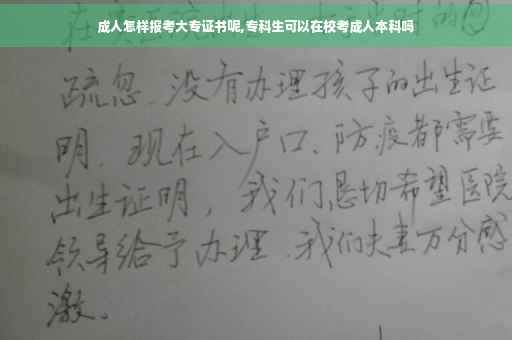 成人怎样报考大专证书呢,专科生可以在校考成人本科吗
疏忽、没有办理孩子的出生证
明、现在入户口、防疫都需要
出生证明，我们恳切希望医院
领导给予办理、我们夫妻万分感
激。